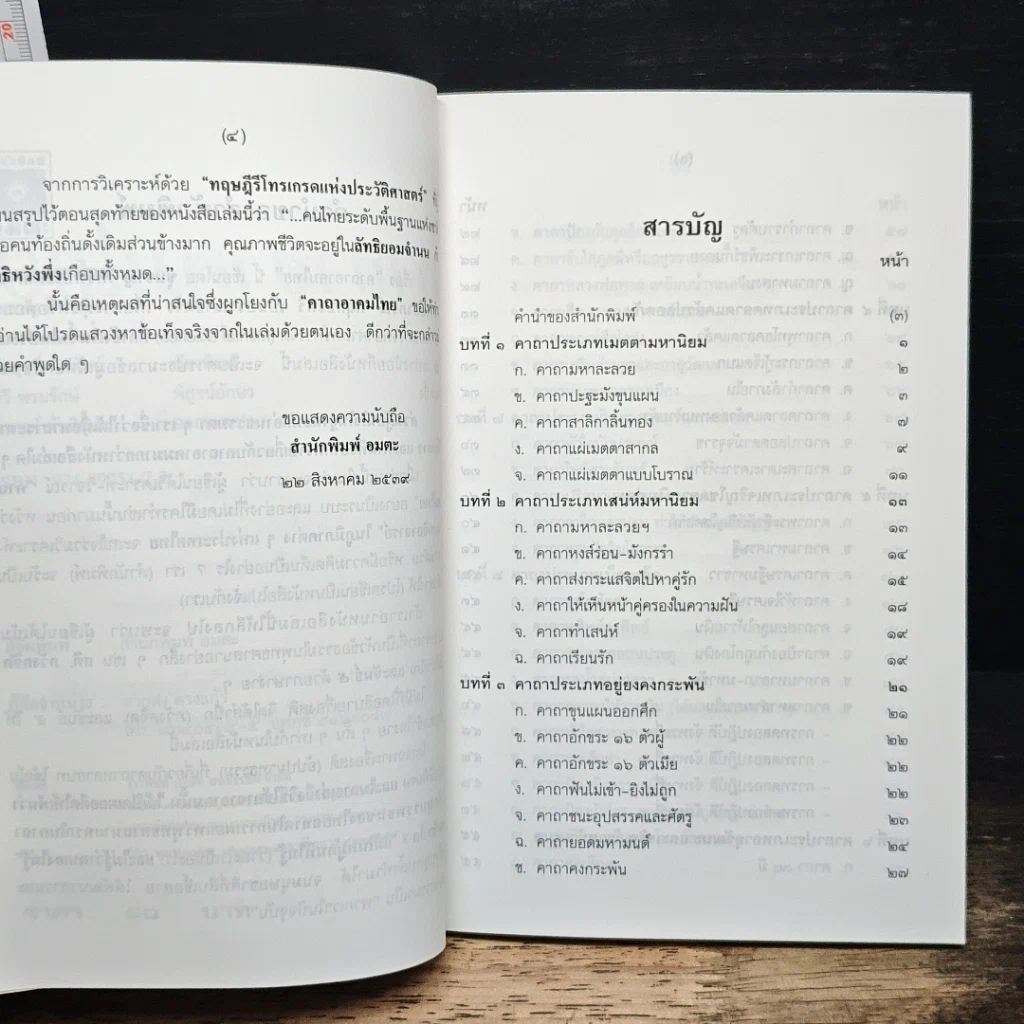 20
(๔)
จากการวิเคราะห์ด้วย "ทฤษฎีรีโทรเกรดแห่งประวัติศาสตร์"
นสรุปไว้ตอนสุดท้ายของหนังสือเล่มนี้ว่า "...คนไทยระดับพื้นฐานแห่ง
อคนท้องถิ่นดั้งเดิมส่วนข้างมาก คุณภาพชีวิตจะอยู่ในลัทธิยอมจำนน
ธิหวังพึ่งเกือบทั้งหมด..."
นั้นคือเหตุผลที่น่าสนใจซึ่งผูกโยงกับ "คาถาอาคมไทย" ขอให้
อ่านได้โปรดแสวงหาข้อเท็จจริงจากในเล่มด้วยตนเอง ดีกว่าที่จะกล่าว
วยคำพูดใด ๆ
ขอแสดงความนับถือ
สำนักพิมพ์ อมตะ
๒๒ สิงหาคม ๒๕๓๙
สารบัญ
หน้า
คำนำของสำนักพิมพ์ (๓)
บทที่ ๑ คาถาประเภทเมตตามหานิยม ๑
ก. คาถามหาละลวย ๒
ข. คาถาปะฐะมังขุนแผน ๓
ค. คาถาสาลิกาลิ้นทอง ๗
ง. คาถาแผ่เมตตาสากล ๙
จ. คาถาแผ่เมตตาแบบโบราณ ๑๑
บทที่ ๒ คาถาประเภทเสน่ห์มหานิยม ๑๓
ก. คาถามหาละลวยฯ ๑๓
ข. คาถาหงส์ร่อน-มังกรรำ ๑๔
ค. คาถาส่งกระแสจิตไปหาคู่รัก ๑๕
ง. คาถาให้เห็นหน้าคู่ครองในความฝัน ๑๘
จ. คาถาทำเสน่ห์ ๑๙
ฉ. คาถาเรียนรัก ๑๙
บทที่ ๓ คาถาประเภทอยู่ยงคงกระพัน ๒๑
ก. คาถาขุนแผนออกศึก ๒๑
ข. คาถาอักขระ ๑๖ ตัวผู้ ๒๒
ค. คาถาอักขระ ๑๖ ตัวเมีย ๒๒
ง. คาถาฟันไม่เข้า-ยิงไม่ถูก ๒๒
จ. คาถาชนะอุปสรรคและศัตรู ๒๓
ฉ. คาถายอดมหามนต์ ๒๔
ช. คาถาคงกระพัน ๒๗